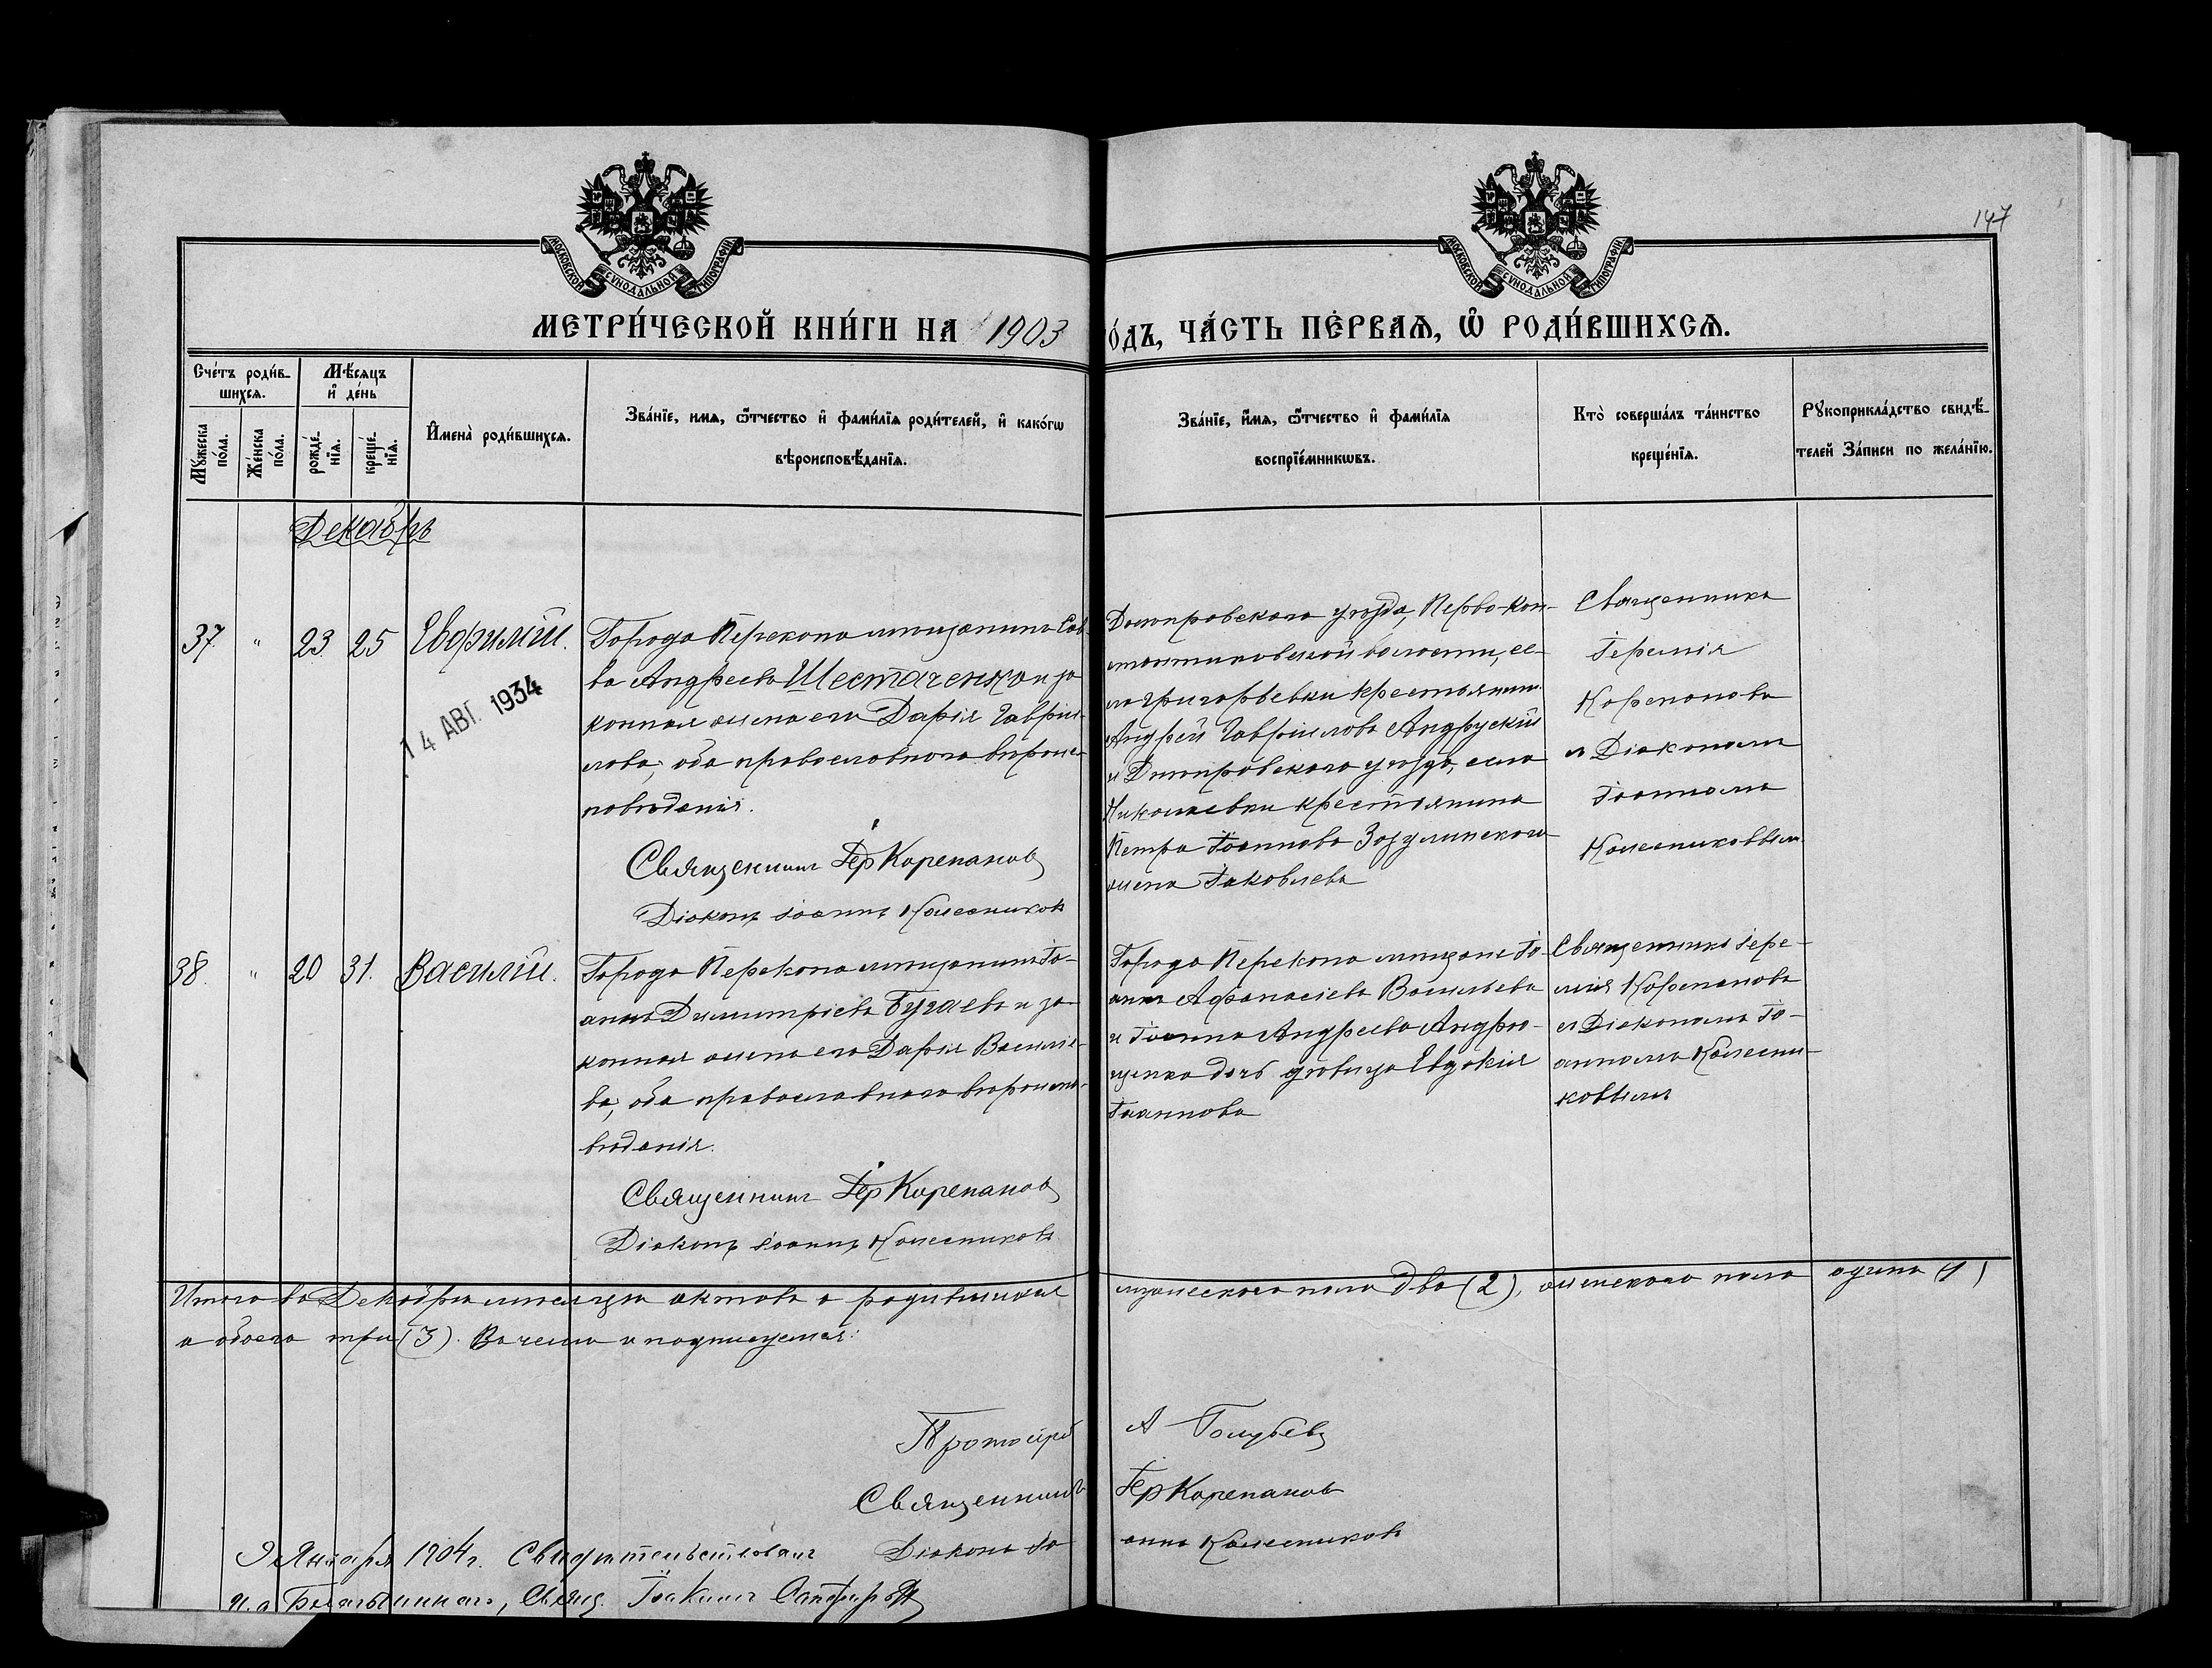 147
МОСКОВСКОЙ СѴНОДАЛЬНОЙ ТИПОГРАФІИ
МОСКОВСКОЙ СѴНОДАЛЬНОЙ ТИПОГРАФІИ
МЕТРИ́ЧЕСКОЙ КНИ́ГИ НА 1903
ГО́ДЪ, ЧА́СТЬ ПЕ́РВАѦ, Ѿ РОДИ́ВШИХСѦ.
Сче́тъ роди́в-
шихсѧ.
Мѣ́сѧцъ
и҆ де́нь
Мꙋ́жеска по́ла.
Же́нска по́ла.
рожде́-
нїѧ.
креще́-
нїѧ.
И҆мена̀ роди́вшихсѧ.
Зва́нїе, имѧ, ѻ҆́тчество и҆ фами́лїѧ роди́телей, и҆ како́гѡ
вѣроисповѣ́данїѧ.
Зва́нїе, и҆́мѧ, ѻ҆́тчество и҆ фами́лїѧ
воспрїе́мникѡвъ.
Кто̀ соверша́лъ та́инство
креще́нїѧ.
Рꙋкоприкла́дство свидѣ́-
телей За́писи по жела́нїю.
Декабрь
37. " 23. 25 Евфимій.
Города Перекопа мѣщанинъ Сав-
ва Андреевъ Шестаченко и за
конная жена его Дарія Гаврiи-
лова, оба православнаго вѣроис-
повѣданія.
Священникъ Іер Корепановъ
Діаконъ Іоаннъ Колесниковъ
Днѣпровскаго уѣзда, Перво-Кон-
стантиновской волости, се-
ла Григорьевки крестьянинъ
Андрей Гавріиловъ Андрускій
и Днѣпровскаго уѣзда, села
Николаевки крестьянина
Петра Іоаннова Зозулинскаго
жена Іаковлева
Священникъ
Іеремія
Корепановъ
съ Діакономъ
Іоанномъ
Колесниковымъ.
14 АВГ. 1934
38. " 20 31. Василій.
Города Перекопа мѣщанинъ Іо-
аннъ Димитріевъ Бугаевъ и за-
конная жена его Дарія Василіе-
ва, оба православнаго вѣроиспо-
вѣданія.
Священникъ Іер Корепановъ
Діаконъ Іоаннъ Колесниковъ
Города Перекопа мѣщане Іо-
аннъ Афанасіевъ Васильевъ
и Іоанна Андреева Андрю-
щенко дочь дѣвица Евдокія
Іоаннова
Священникъ Іере-
мія Корепановъ
съ Діакономъ Іо-
анномъ Колесни-
ковымъ
Итого въ Декабрѣ мѣсяцѣ актовъ о родившихся мужескаго пола два (2), женскаго пола одинъ (1)
а обоего три (3). Въ чемъ и подписуемся:
Протоіерей А Голубевъ
Священникъ Іер Корепановъ
Діаконъ Іоаннъ Колесниковъ
9 Января 1904 г. Свидѣтельствовалъ
и. д. Благочиннаго, Свящ. Іоакимъ